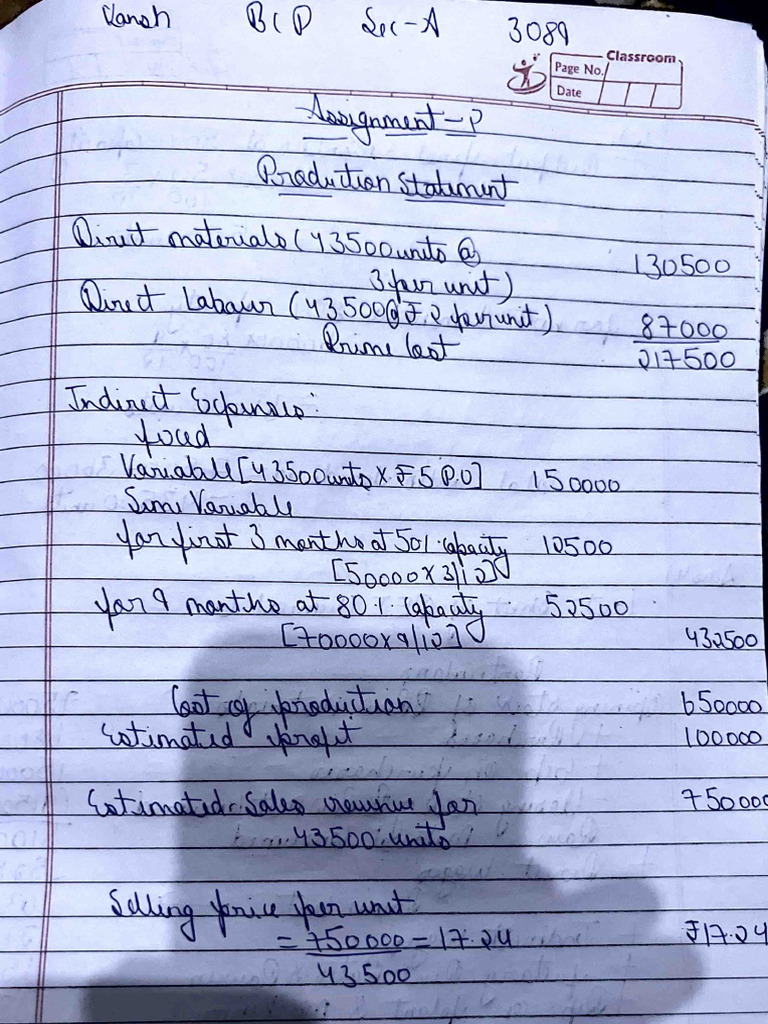 Vansh BCP Sec-A 3089
Classroom
Page No.
Date
Assignment-P
Production Statement
Direct materials (43500 units @ 130500
3 per unit)
Direct Labour (43500@ ₹2 per unit) 87000
Prime Cost 217500
Indirect Expenses:
fixed
Variable [43500 units x ₹5 P.U] 150000
Semi Variable
for first 3 months at 50% capacity 12500
[50000x3/12]
for 9 months at 80% capacity 52500
[70000x9/12] 432500
Cost of production 650000
Estimated profit 100000
Estimated Sales revenue for 750000
43500 units
Selling price per unit
= 750000 = 17.24 ₹17.24
43500